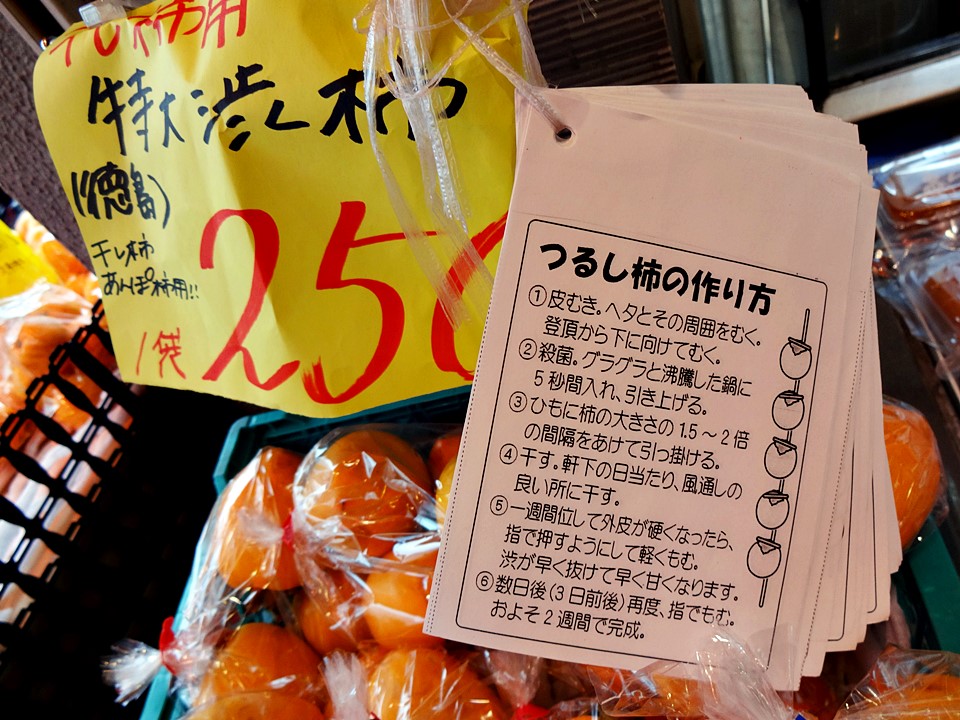 干し柿用
特大渋し柿
(徳島)
干し柿
あんぽ柿用!!
1袋
250
つるし柿の作り方
①皮むき。ヘタとその周囲をむく。
登頂から下に向けてむく。
②殺菌。グラグラと沸騰した鍋に
5秒間入れ、引き上げる。
③ひもに柿の大きさの1.5～2倍
の間隔をあけて引つ掛ける。
④干す。軒下の日当たり、風通しの
良い所に干す。
⑤一週間位して外皮が硬くなったら、
指で押すようにして軽くもむ。
渋が早く抜けて早く甘くなります。
⑥数日後(3日前後)再度、指でもむ。
およそ2週間で完成。